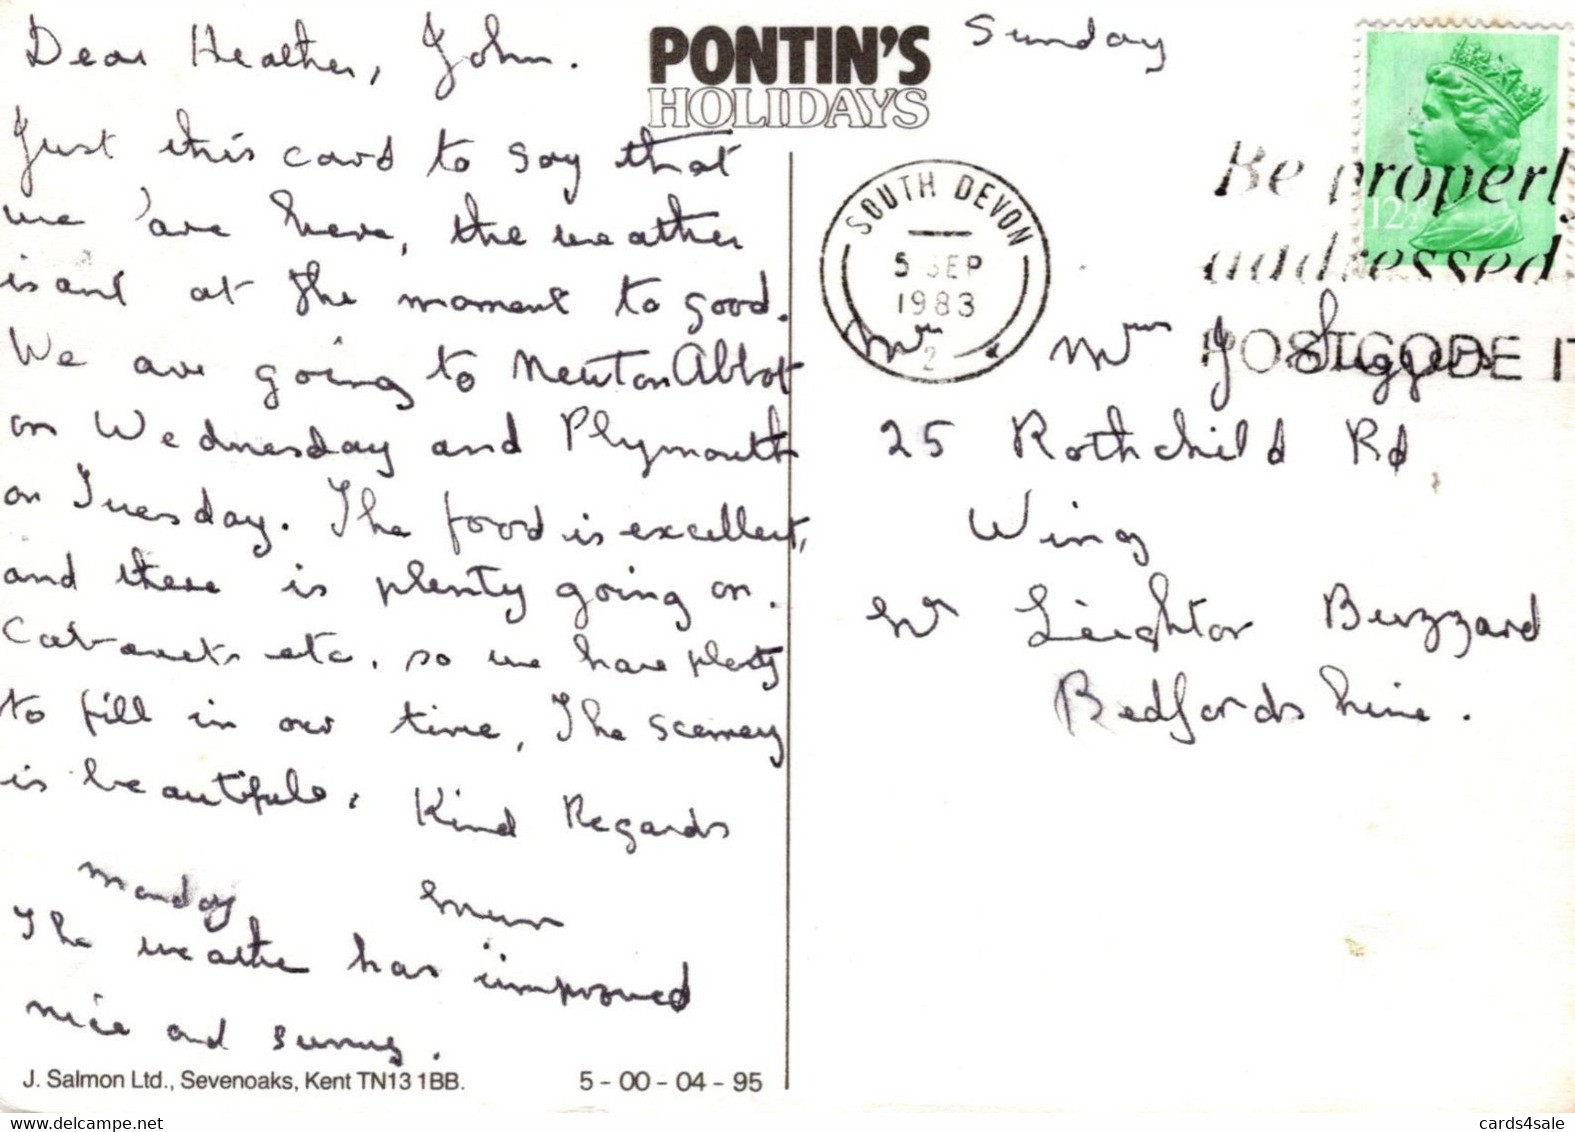 Dear Heather, John.
PONTIN'S
HOLIDAYS
Sunday
Just this card to say that
we 'are here, the weather
isant at the moment to good.
We are going to Newton Abbot
on Wednesday and Plymouth
on Tuesday. The food is excellent,
and there is plenty going on.
Cabarets etc. so we have plenty
to fill in our time, The scenery
is beautiful. Kind Regards
Mum
Monday
The weather has improved
nice and sunny.
J. Salmon Ltd., Sevenoaks, Kent TN13 1BB.
5 - 00 - 04 - 95
SOUTH DEVON
5 SEP
1983
2
12½
Be properly
addressed
POSTCODE IT
Mr & Mrs J
25 Rothchild Rd
Wing
Nr Leighton Buzzard
Bedfordshire.
cards4sale